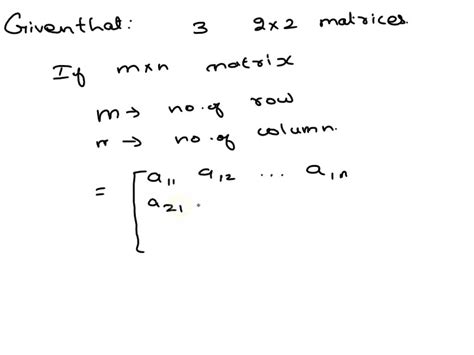 Given that: 3 2×2 matrices.
If m×n matrix
m → no. of row
n → no. of column.
= [ a₁₁ a₁₂ ... a₁ₙ
a₂₁ .